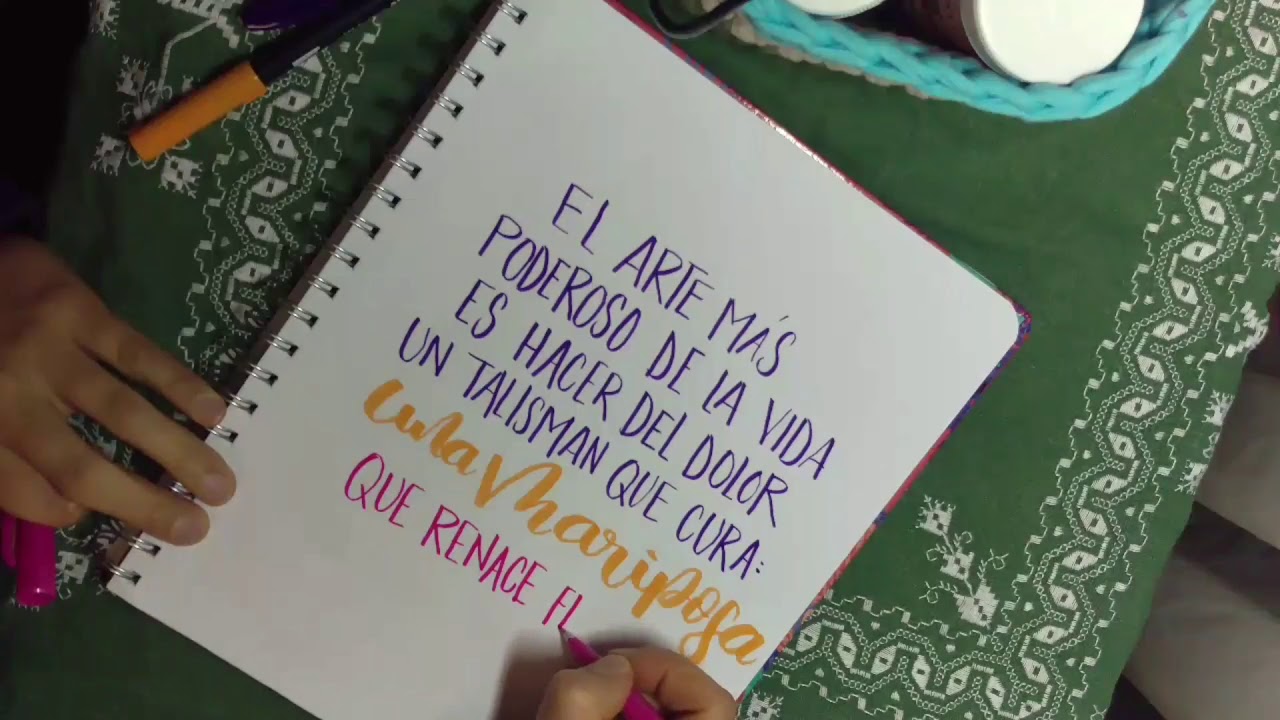 EL ARTE MÁS
PODEROSO DE LA VIDA
ES HACER DEL DOLOR
UN TALISMAN QUE CURA:
una mariposa
QUE RENACE FL